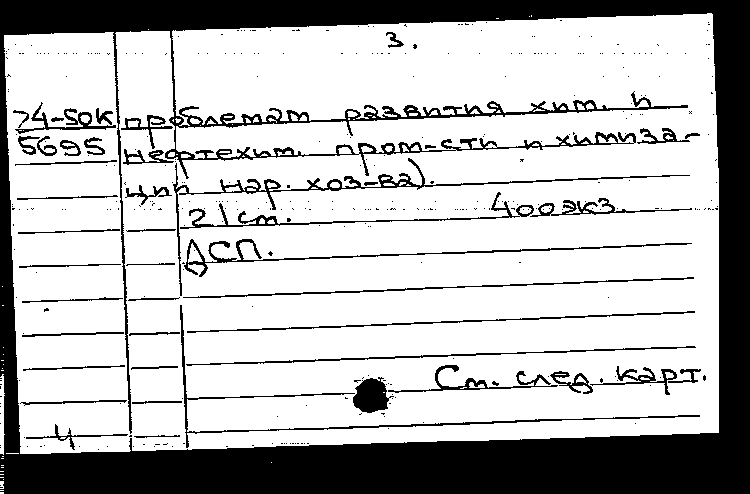 3.
74-50к проблемам развития хим. и
5695 нефтехим. пром-сти и химиза-
ции нар. хоз-ва).
21 см. 400 экз.
ДСП.
См. след. карт.
4